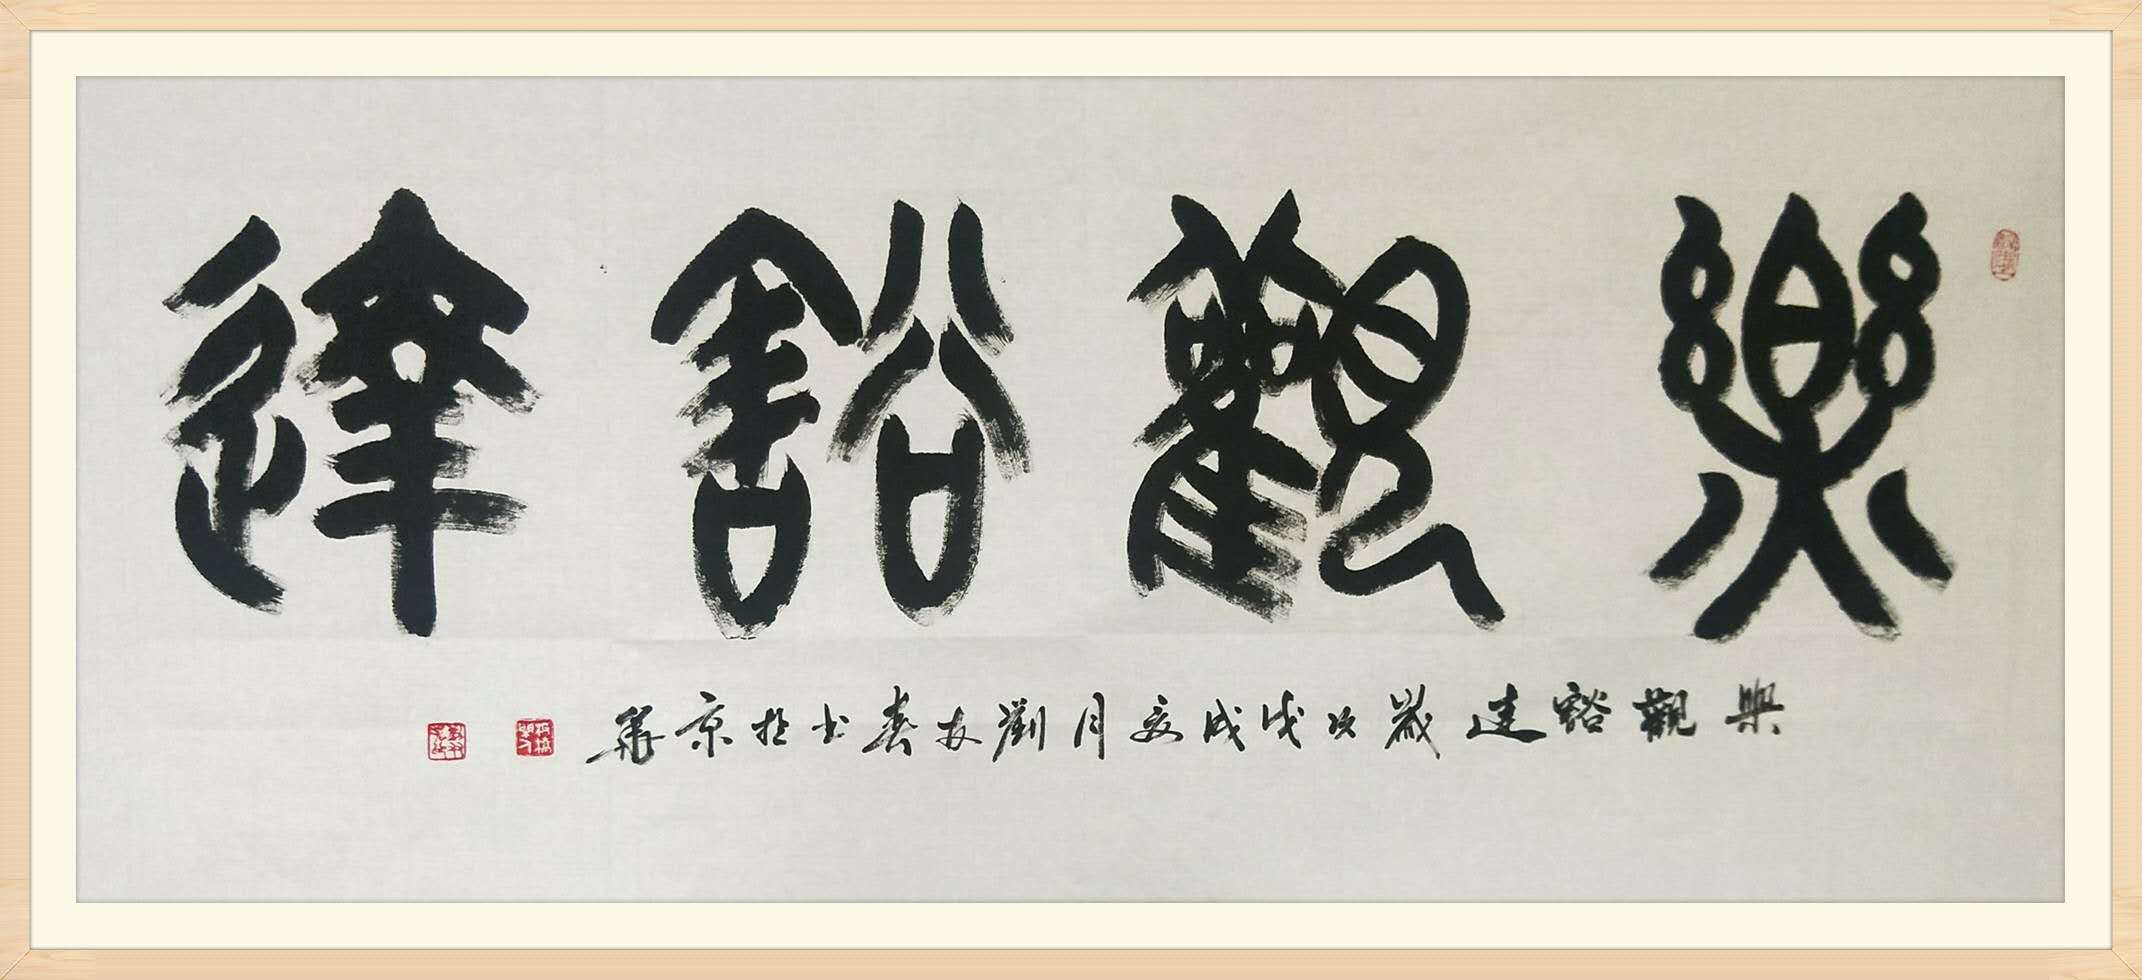 樂觀豁達
樂觀豁達歲次戊戌夏月劉友春書於京華